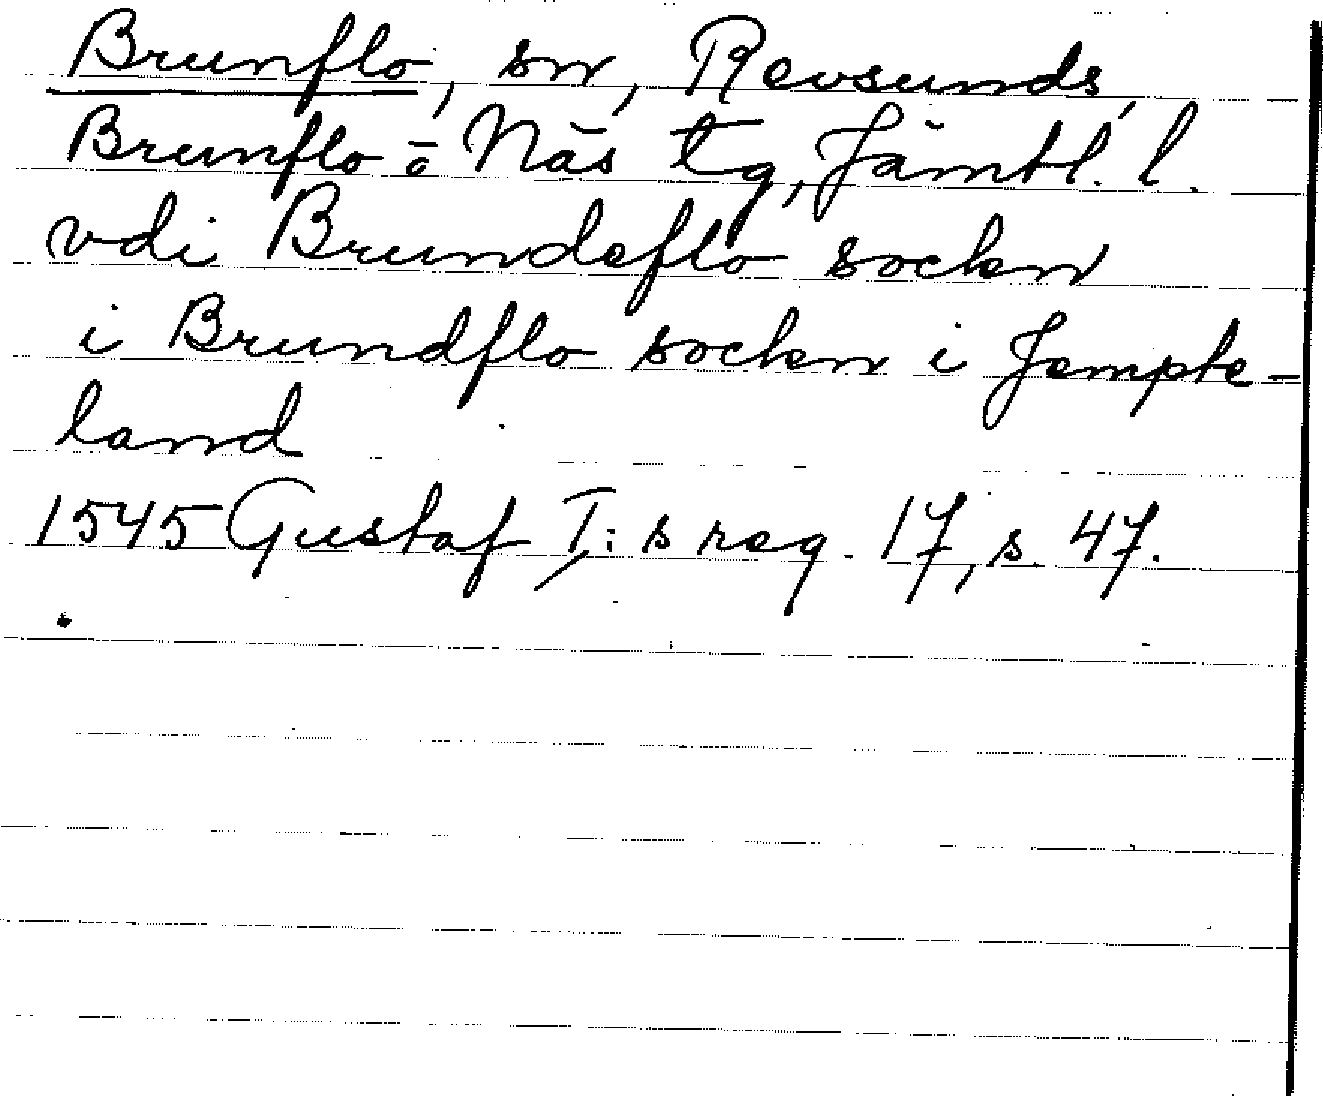 Brunflo, sn, Revsunds,
Brunflo o Näs tg, Jämtl. l.
vdi Brundeflo sockn
i Brundflo sockn i Jempte-
land
1545 Gustaf I:s reg. 17, s. 47.